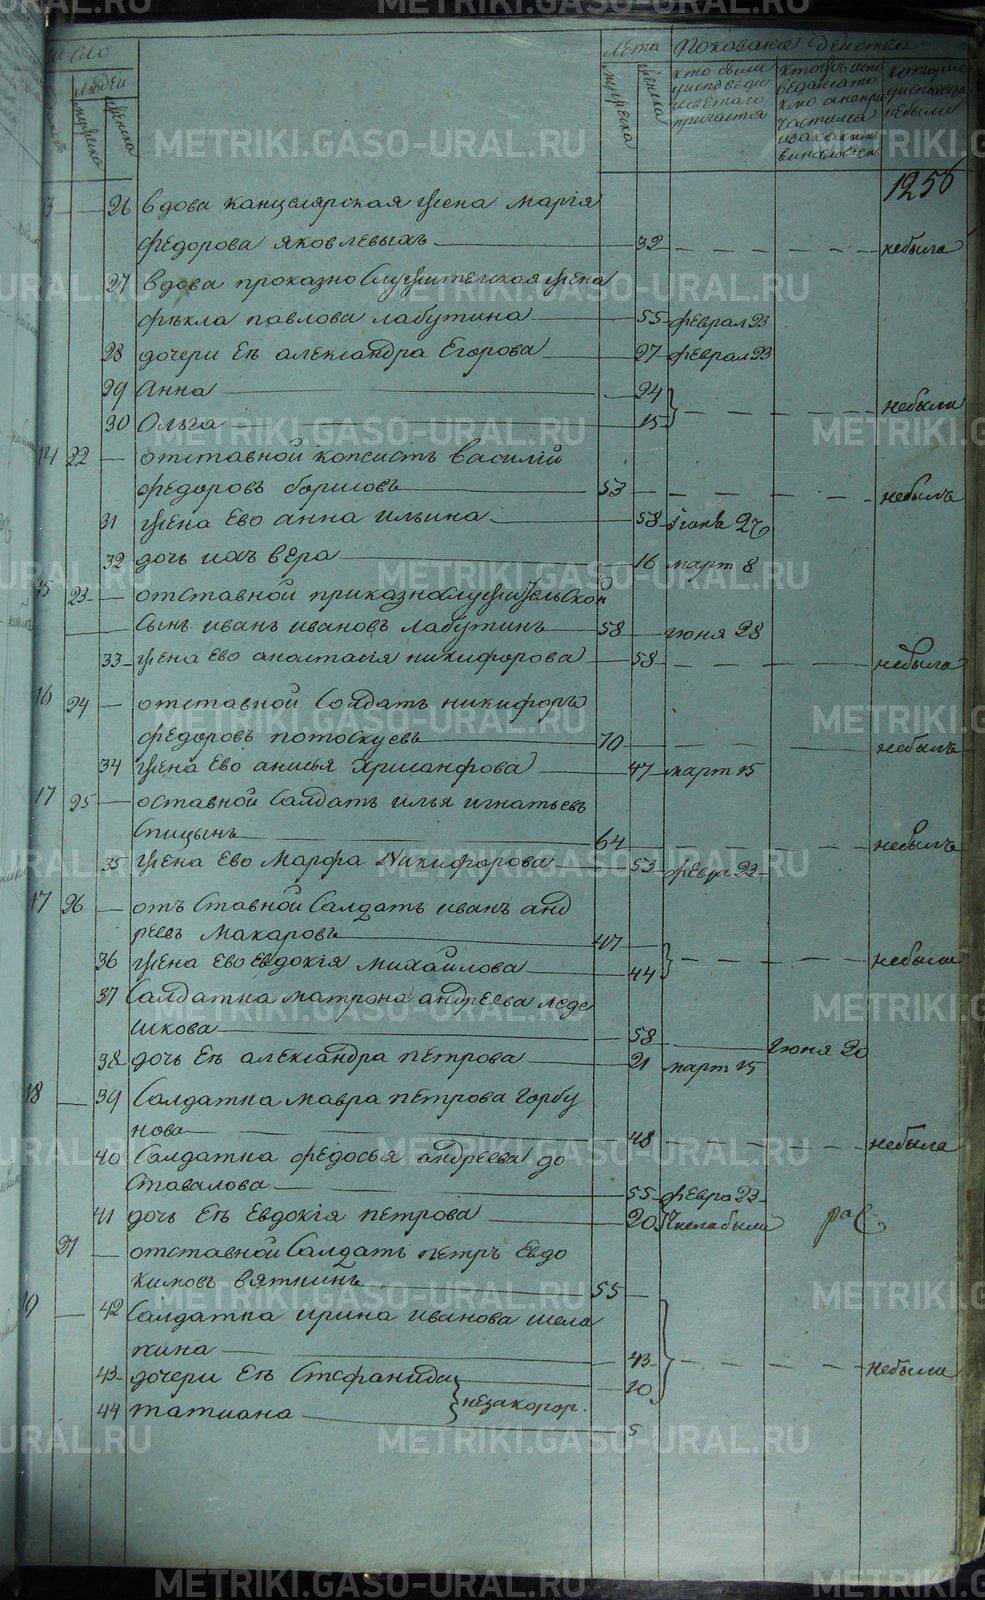 число
людей
мужеска
женска
Лета
мужеска
женска
Показание действа
кто были
уисповеди
исвятаго
причастiя
которые
небыли
1256
13 — 26 вдова канцелярская жена марiя
федорова яковлевыхъ — 32 — — — — небыла
27 вдова приказнослужительская жена
фѣкла павлова лабутина — 55 феврал 23
28 дочери Еѣ александра Егорова — 27 феврал 23
29 Анна — 24
30 Ольга — 15 — — — небыли
14 22 — отставной копеистъ василiй
федоровъ борисовъ — 53 — — — — небылъ
31 жена Ево анна ильина — 58 Iюня 27
32 дочь ихъ вера — 16 март 8
15 23 — отставной приказнослужительской
Сынъ иванъ ивановъ лабутинъ — 58 — июня 28
33 жена Ево анастасiя никифорова — 58 — — — — небыла
16 24 — отставной Солдатъ никифоръ
федоровъ потоскуевъ — 70 — — — — небылъ
34 жена Ево анисья хрисанфова — 47 март 15
17 25 — оставной Салдатъ илья игнатьевъ
Спицынъ — 64 — — — — небылъ
35 жена Ево Марфа Никифорова — 53 февра 23
17 26 — отъ Ставной Салдатъ иванъ анд
реевъ Макаровъ — 47 —
36 жена Ево Евдокiя михайлова — 44 — — — небыли
37 Салдатка матрона андреева леде
шкова — 58 — Iюня 20
38 дочь Еѣ александра петрова — 21 март 15
18 — 39 Салдатка мавра петрова горбу
нова — 48 — — — — небыла
40 Салдатка федосья андреева до
Ставалова — 55 февра 23
41 дочь Еѣ Евдокiя петрова — 20 Числа были
27 — отставной Салдатъ петръ Евдо
кимовъ вяткинъ — 55 —
19 — 42 Салдатка ирина иванова шела
кина — 43 — — — небыли
43 дочери Еѣ Стефанида — 10
44 татиана — 5
METRIKI.GASO-URAL.RU